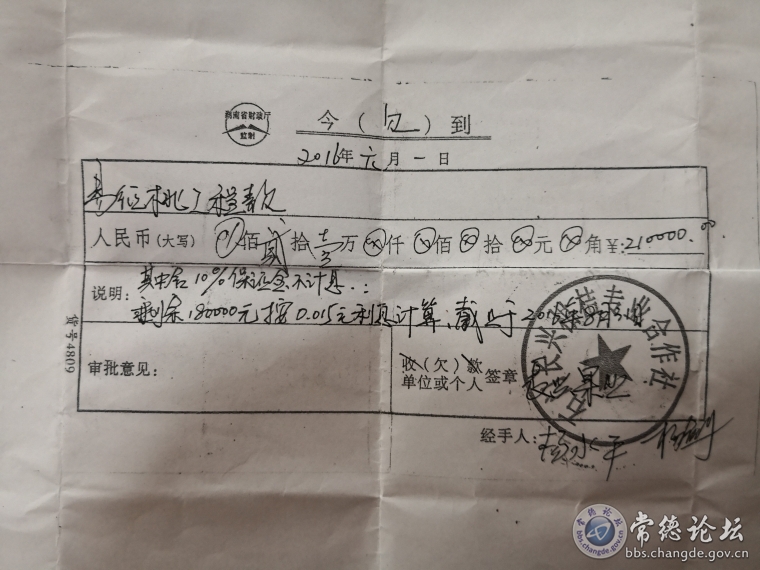 湖南省财政厅
监制
今(欠)到
2016年六月一日
易位桃工程款
人民币(大写) 佰贰拾壹万 仟 佰 拾 元 角 ¥:210000.00
说明:其中含10%保证金不计息.
剩余180000元按0.015元利息计算,截止于2018年8月
货号4809
审批意见:
收(欠)款
单位或个人 签章
果业
种植专业合作社
经手人:
常德论坛
bbs.changde.gov.cn